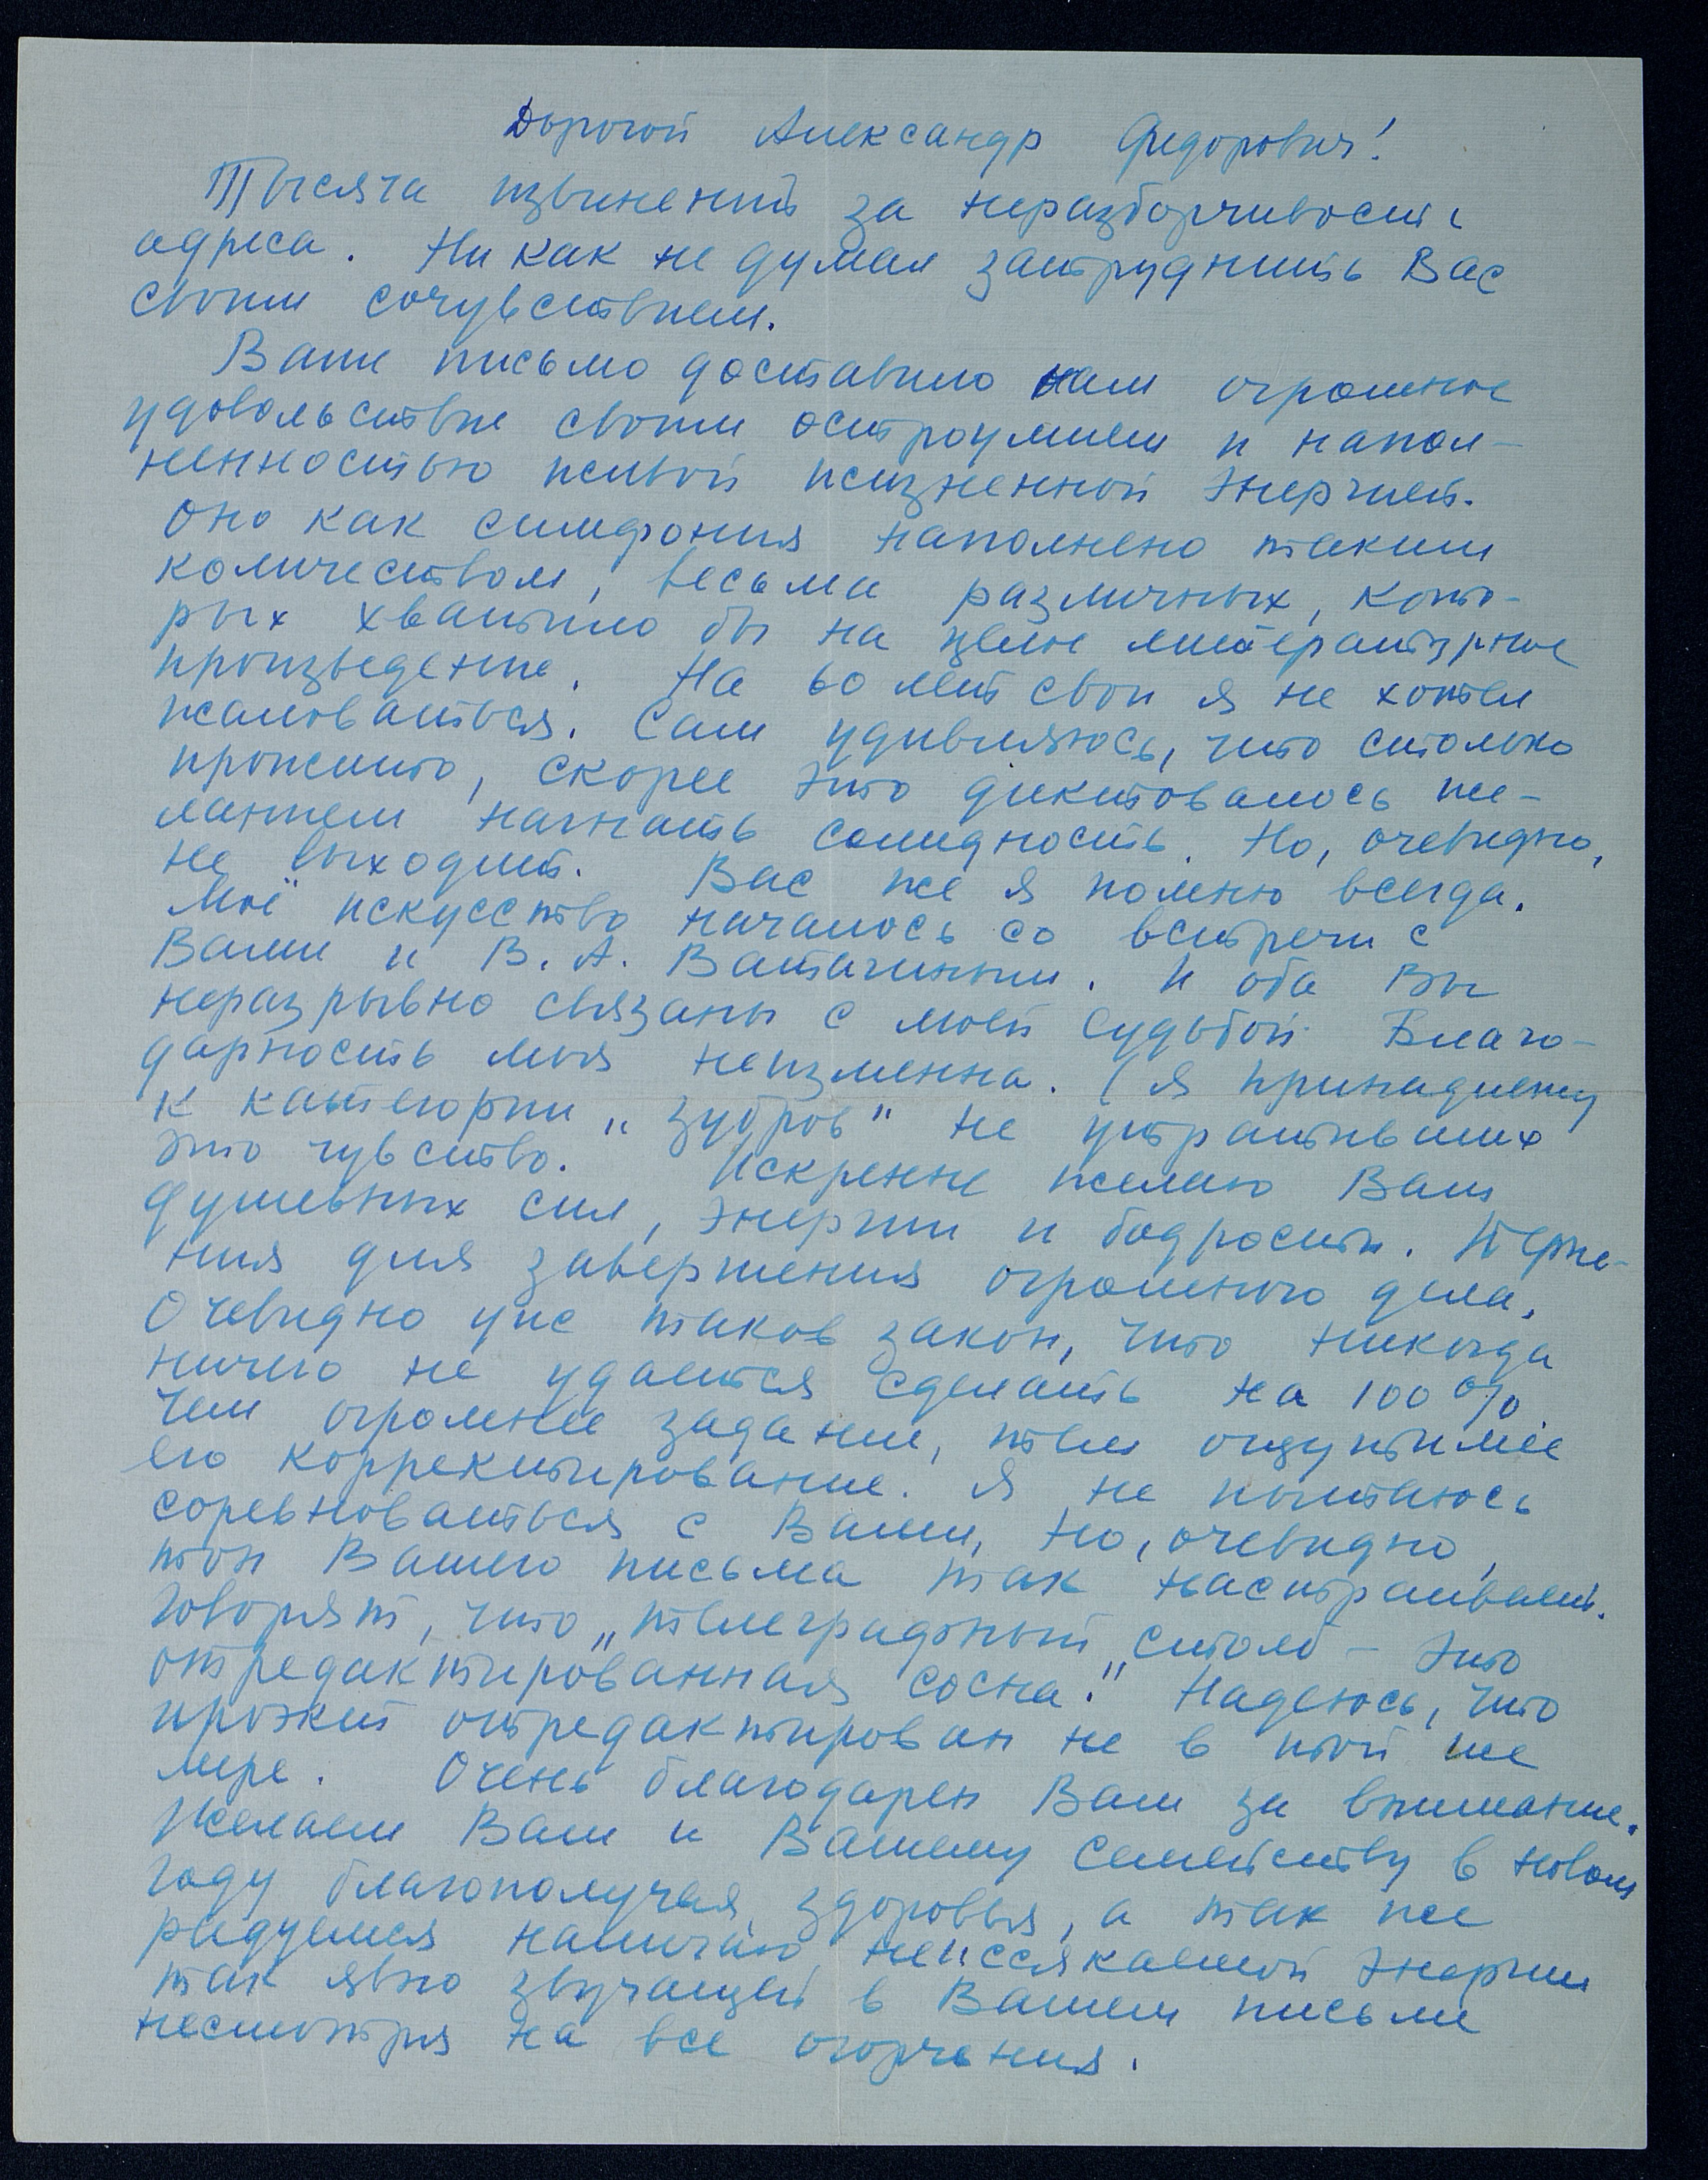 Дорогой Александр Федорович!
Тысяча извинений за неразборчивость
адреса. Ни как не думал затруднить Вас
своим сочувствием.
Ваше письмо доставило нам огромное
удовольствие своим остроумием и напол-
ненностью живой жизненной энергией.
Оно как симфония наполнено таким
количеством, весьма различных, кото-
рых хватило бы на целое литературное
произведение. На 60 лет свои я не хотел
жаловаться. Сам удивляюсь, что столько
прожито, скорее это диктовалось же-
ланием нагнать солидность. Но, очевидно,
не выходит. Вас же я помню всегда.
Моё искусство началось со встречи с
Вами и В. А. Ватагиным. И оба Вы
неразрывно связаны с моей судьбой. Благо-
дарность моя неизменна. (Я принадлежу
к категории „зубров" не утративших
это чувство. Искренне желаю Вам
душевных сил, энергии и бодрости. Терпе-
ния для завершения огромного дела.
Очевидно уже таков закон, что никогда
ничего не удается сделать на 100%.
Чем огромнее задание, тем ощутимее
его корректирование. Я не пытаюсь
соревноваться с Вами, но, очевидно,
тон Вашего письма так настраивает.
Говорят, что „телеграфный столб – это
отредактированная сосна." Надеюсь, что
проэкт отредактирован не в той же
мере. Очень благодарен Вам за внимание.
Желаем Вам и Вашему семейству в новом
году благополучия, здоровья, а так же
радуемся наличию неиссякаемой энергии
так явно звучащей в Вашем письме
несмотря на все огорчения.